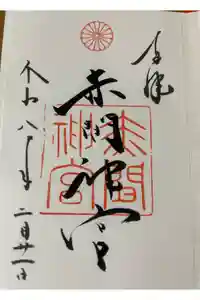 奉拝
赤間神宮
赤間
神宮
令和八年
二月廿一日